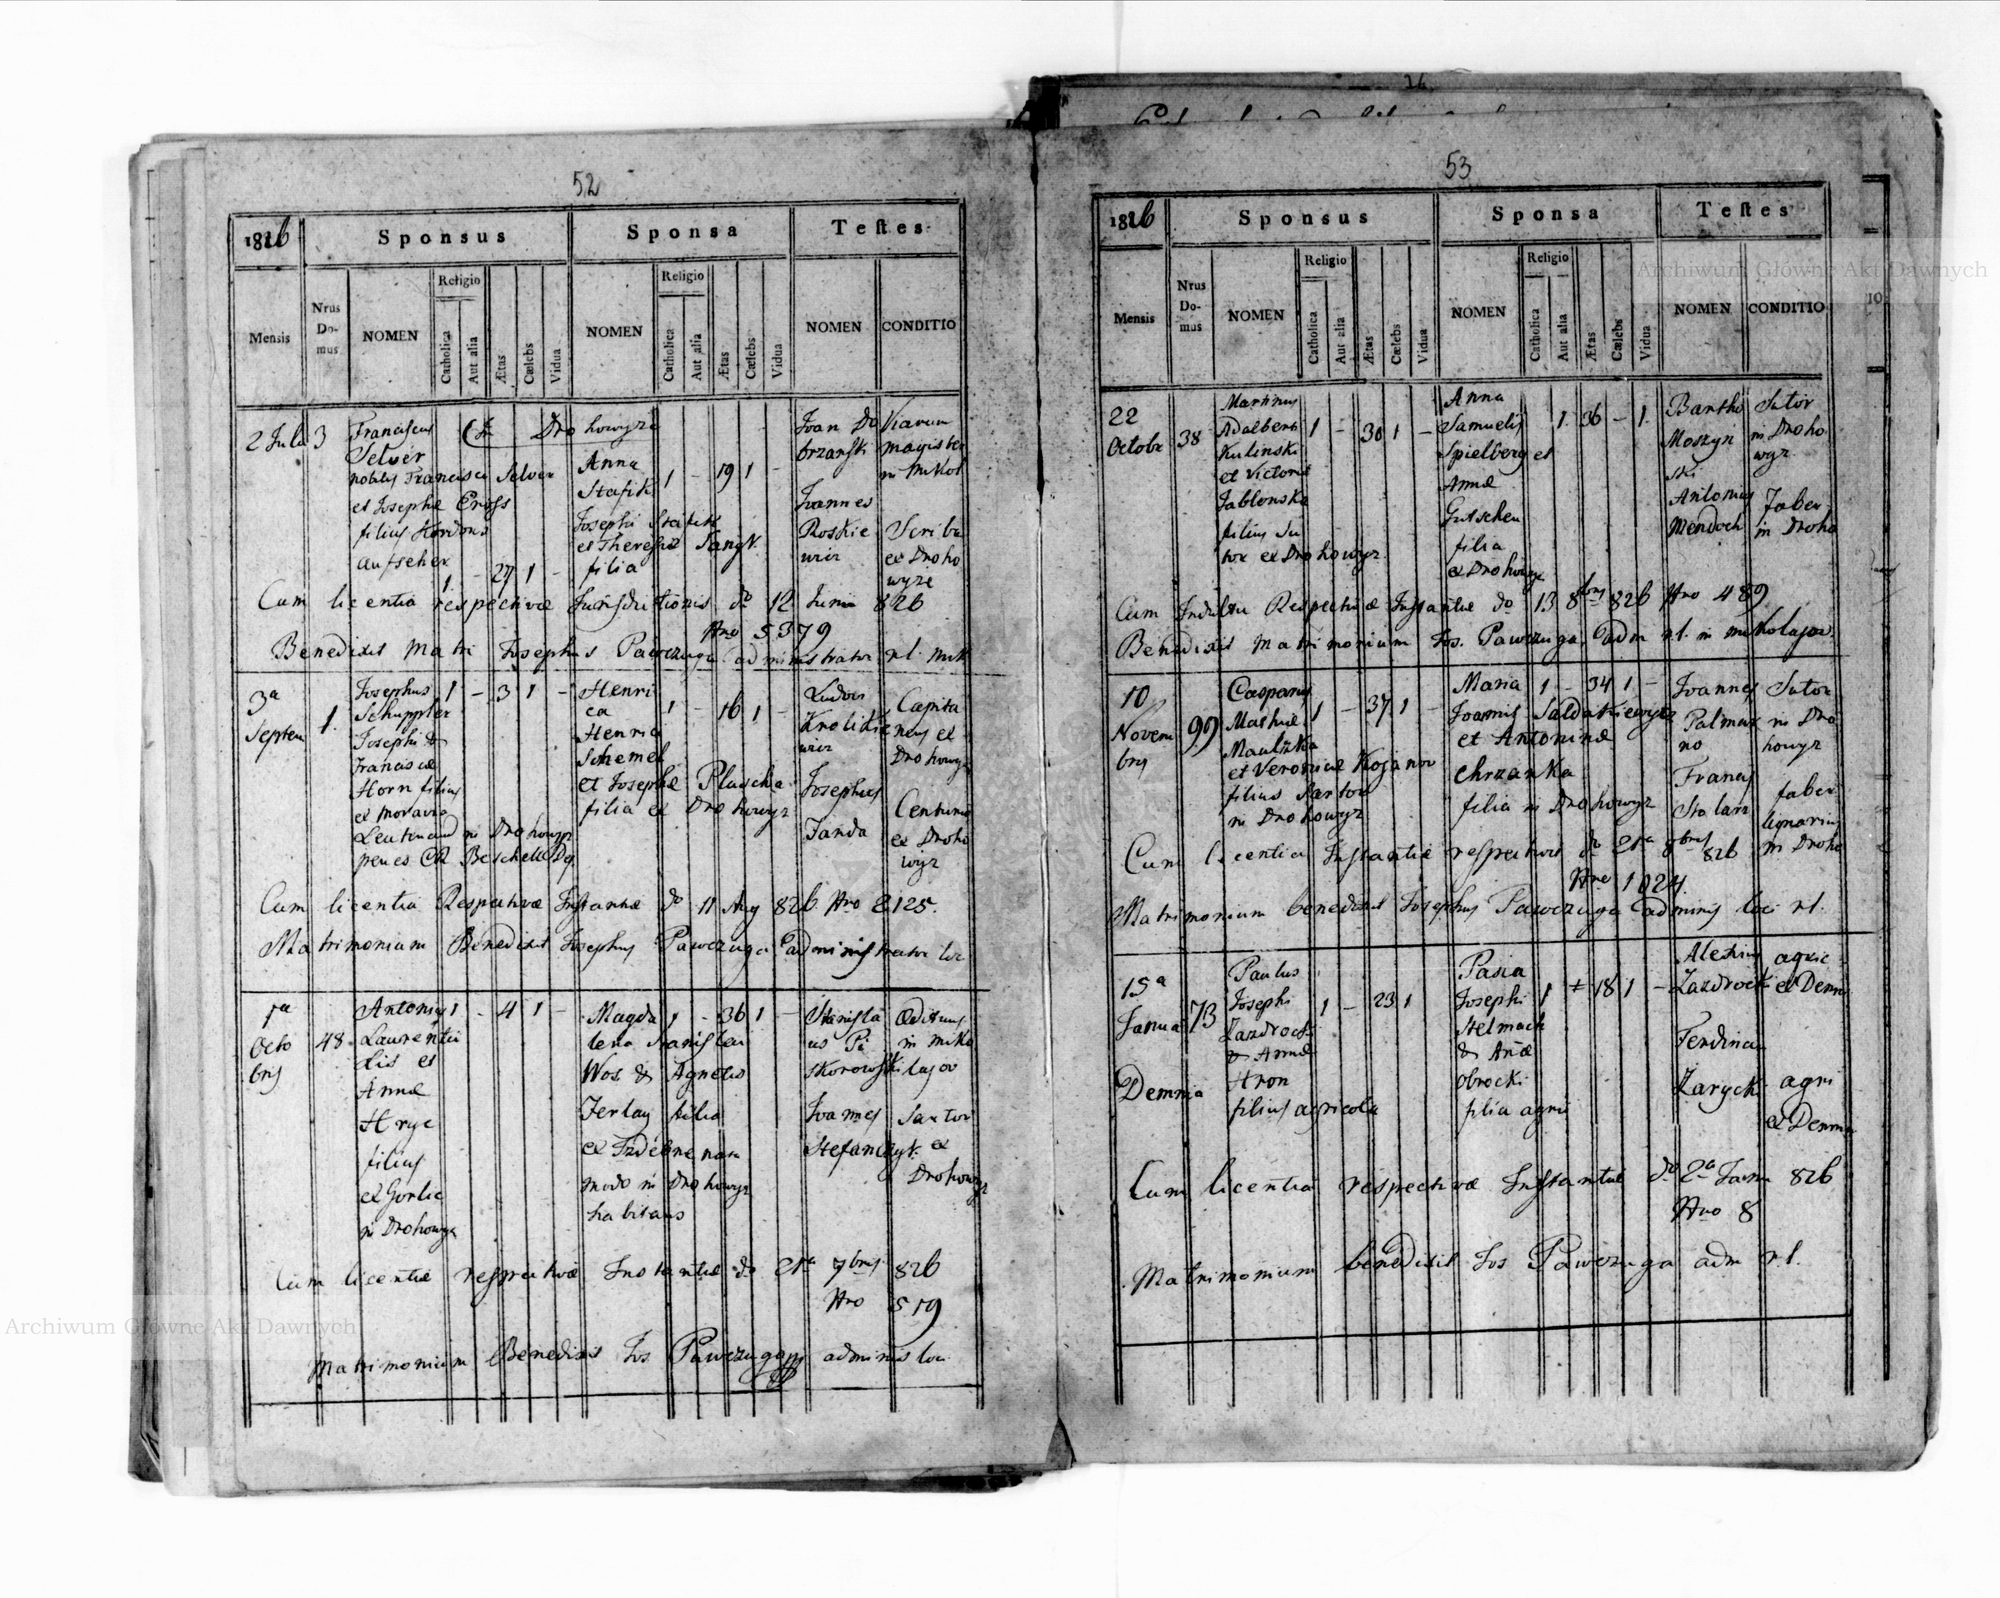 52
1826
Sponsus
Sponsa
Testes
Mensis
Nrus Domus
NOMEN
Religio
Catholica
Aut alia
Ætas
Cælebs
Vidua
NOMEN
Religio
Catholica
Aut alia
Ætas
Cælebs
Vidua
NOMEN
CONDITIO
2 Jula 3
Franciscus
Selver
nobilis Francisci Selver
et Josephæ
filius Kordons
aufseher
1 - 27 1 -
Drohowyze
Anna
Stafik
1 - 19 1 -
Josephi
et Theresiæ
filia
Joan Do
brzański
Viarum
magister
in Mikol
Joannes
Roskie
wicz
Scriba
ex Droho
wyze
Cum licentia respectivæ Jurisdictionis do 12 Junii 826
Nro 5379
Benedixit Matri Josephus Pawczuga administrator rl. Mik
3a
Septem
1.
Josephus 1 - 3 1 -
Schuppler
Josephi &
Franciscæ
Horn filius
ex Moravia
Leutinand in Drohowyz
penes CR
Henri
ca
Henrici
Schemel
1 - 16 1 -
et Josephæ
filia ex Drohowyz
Ludovi
Krolikie
wicz
Capita
neus ex
Drohowyz
Josephus
Janda
Centurio
ex Droho
wyz
Cum licentia Respectivæ Instantiæ do 11 Aug 826 Nro 2125.
Matrimonium Benedixit Josephus Pawczuga administrator loc
1a
Octo
bris
48
Antonius 1 - 4 1 -
Laurentii
Lis et
Annæ
Hryc
filius
ex Gorlic
in Drohowyz
Magda 1 - 36 1 -
lena Stanislai
Wos & Agnetis
Ferlay filia
ex nata
modo in Drohowyz
habitans
Stanisla
us Pi
skorowski
Ædituus
in Miko
lajow
Joannes
Stefanczyk
Sartor
ex
Drohowyz
Cum licentia respectivæ Instantiæ do 21a 7bris 826
Nro 519
Matrimonium Benedixit Jos Pawczuga adminis loci
53
1826
Sponsus
Sponsa
Testes
Mensis
Nrus Domus
NOMEN
Religio
Catholica
Aut alia
Ætas
Cælebs
Vidua
NOMEN
Religio
Catholica
Aut alia
Ætas
Cælebs
Vidua
NOMEN
CONDITIO
22
Octobr
38
Martinus
Adalberti
Kulinski
et Victoriæ
Jablonska
filius Su
tor ex Drohowyz
1 - 30 1 -
Anna
Samuelis
Spielberg et
Annæ
Gutschen
filia
ex Drohowyz
1 36 - 1
Bartho
Moszyn
ski
Sutor
in Droho
wyz
Antonius
Mendoch
Faber
in Droho
Cum Indultu Respectivæ Instantiæ do 13 8bris 826 Nro 489
Benedixit Matrimonium Jos. Pawczuga adm rl. in Mikolajow.
10
Novem
bris
99
Casparus
Mathiæ
Maulizka
et Veronicæ Kojanow
filius Sartor
in Drohowyz
1 - 37 1 -
Maria 1 - 34 1 -
Joannis Saldakiewycz
et Antoninæ
chrzanka
filia in Drohowyz
Joannes
Palmar
no
Sutor
in Dro
howyz
Francis
Stolarz
faber
lignarius
in Droho
Cum licentia Instantiæ respectivæ do 21a 8bris 826
Nro 1024.
Matrimonium benedixit Josephus Pawczuga adminis loci rl.
15a
Janua
Demnia
73
Paulus
Josephi
Zazdrocki
& Annæ
Hron
filius agricola
1 - 23 1
Pasia
Josephi
Stelmach
& Anæ
Obrocki
filia agri
1 - 18 1 -
Alexius
Zazdrocki
agric
ex Demni
Ferdina
Zarycki
agri
ex Demni
Cum licentia respectivæ Instantiæ do 2a Janu 826
Nro 8
Matrimonium benedixit Jos Pawczuga adm rl.
10
Archiwum Główne Akt Dawnych
Archiwum Główne Akt Dawnych